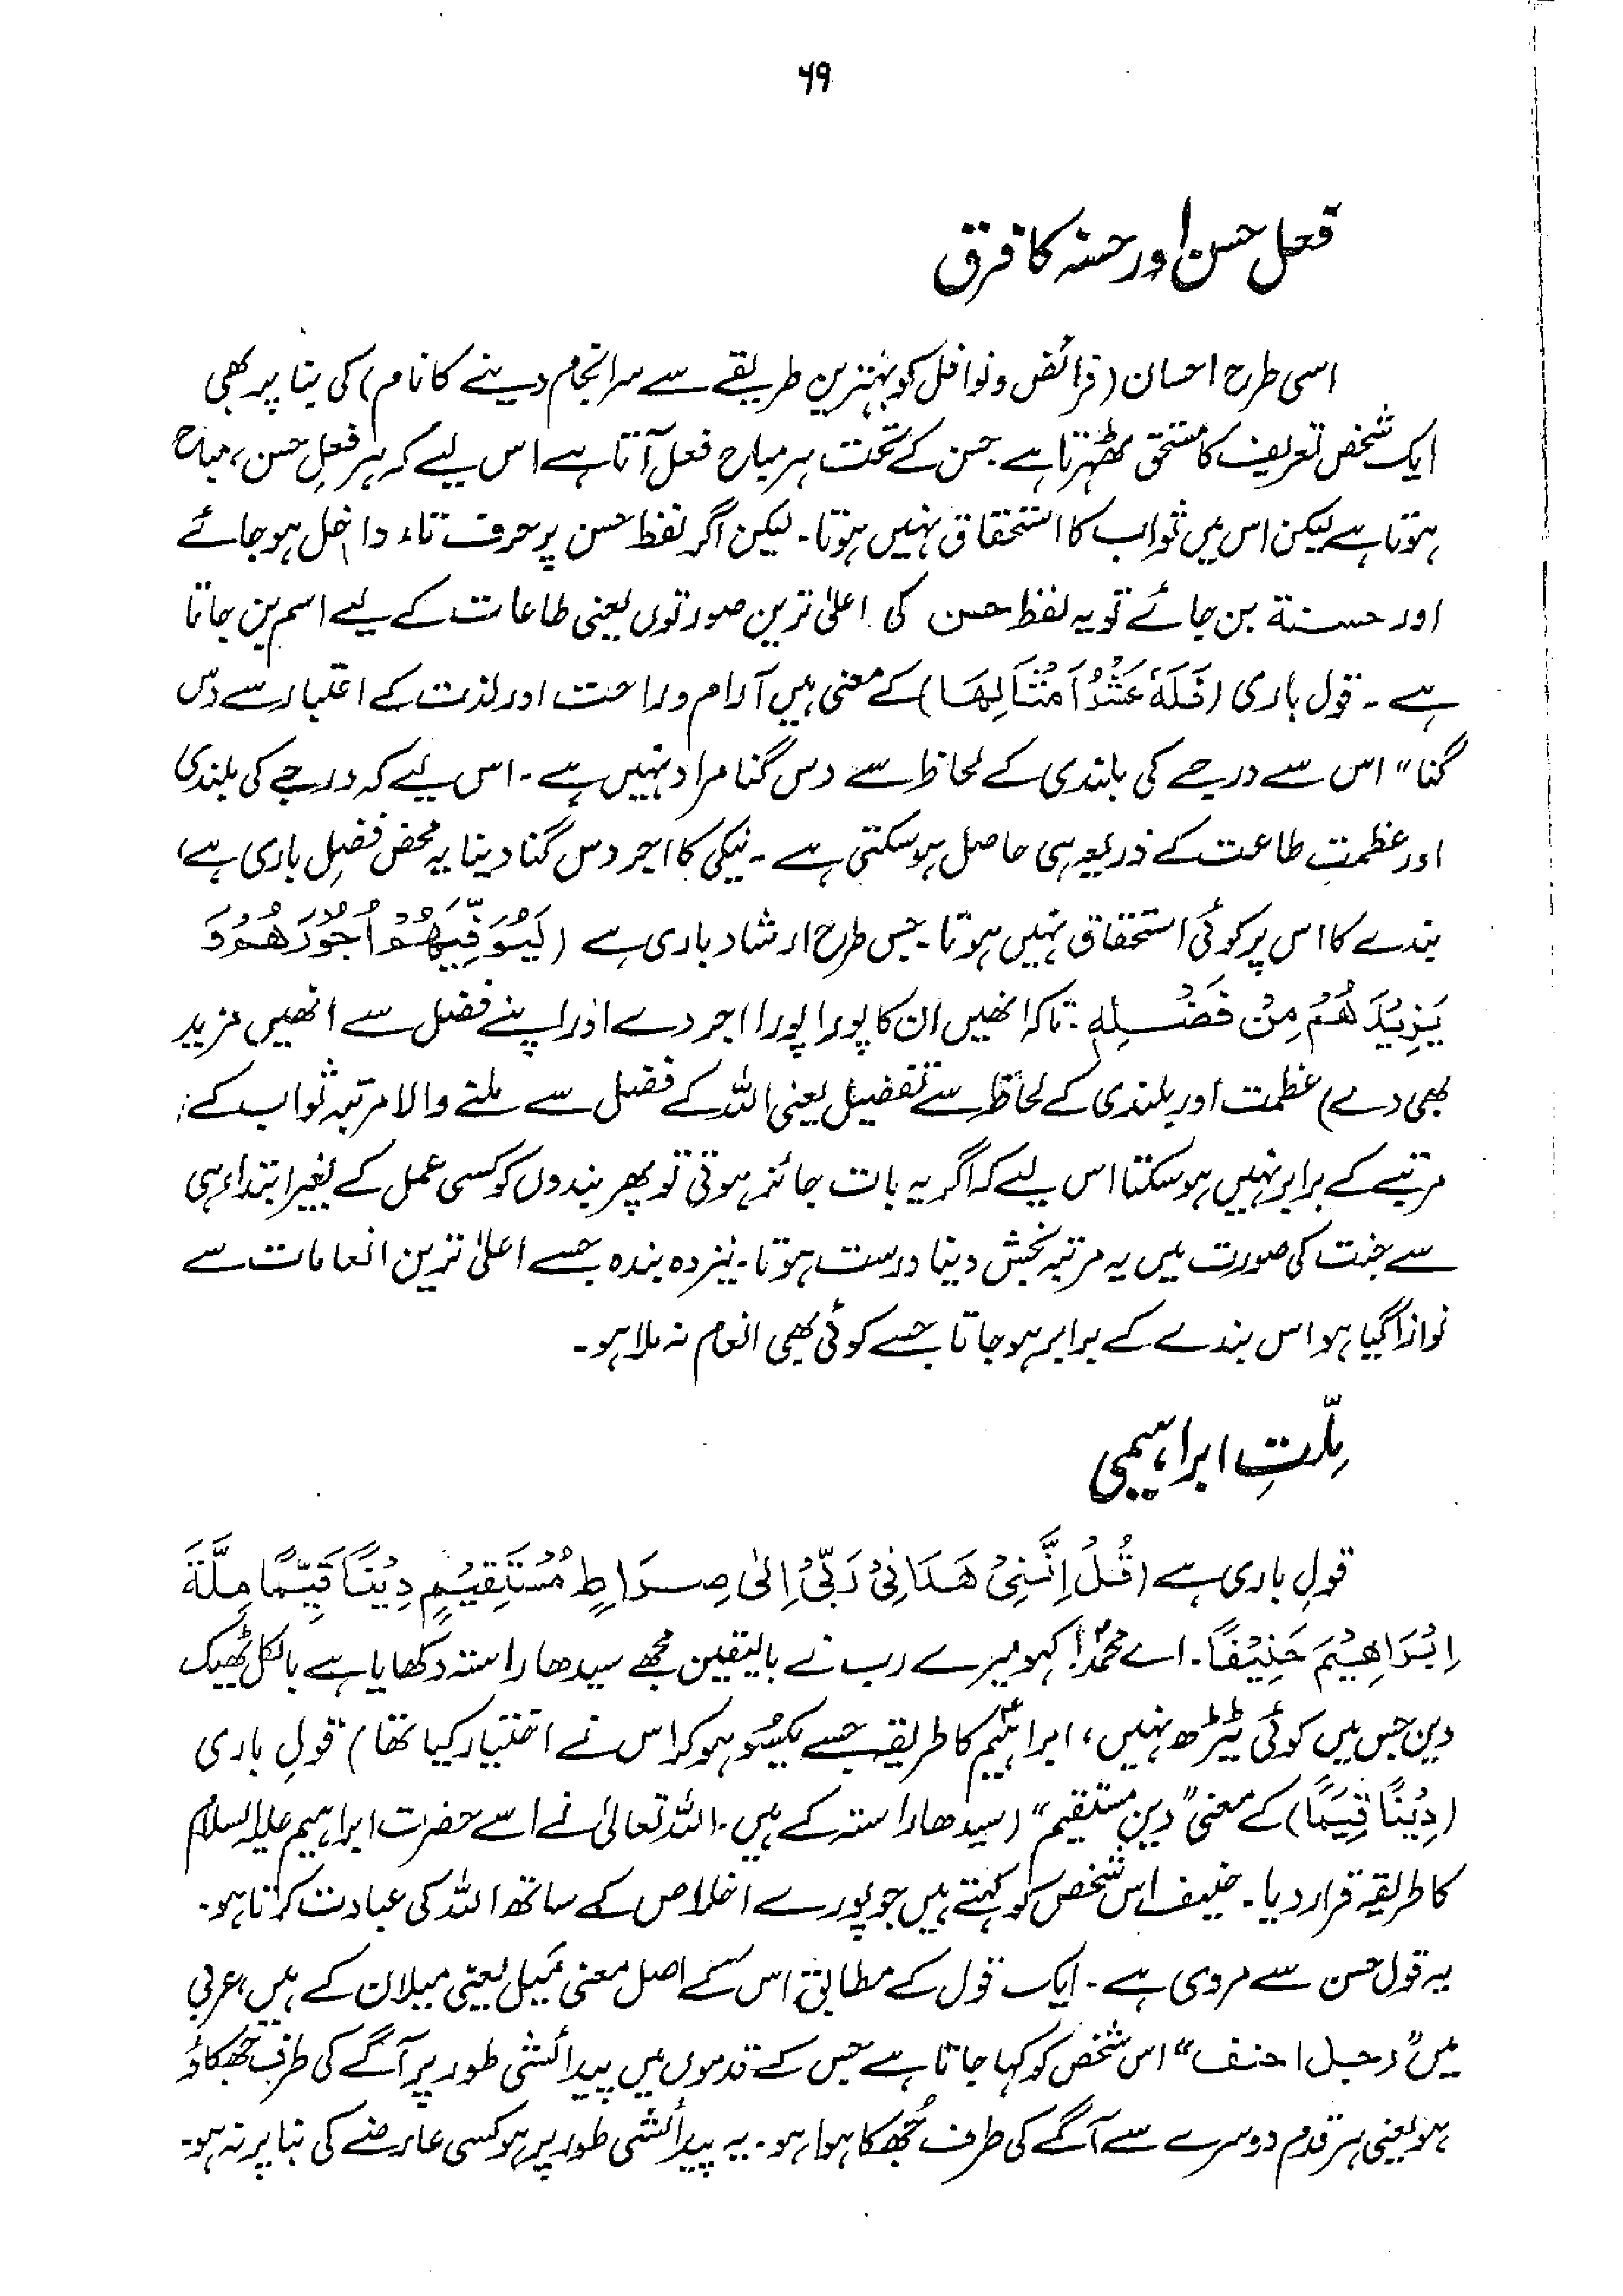 ۶۹
فعل حسن اور حسنہ کا فرق
اسی طرح احسان (فرائض و نوافل کو بہترین طریقے سے سرانجام دینے کا نام) کی بنا پر بھی
ایک شخص تعریف کا مستحق ٹھہرتا ہے۔ حسن کے تحت ہر مباح فعل آتا ہے اس لیے کہ ہر فعلِ حسن، مباح
ہوتا ہے لیکن اس میں ثواب کا استحقاق نہیں ہوتا۔ لیکن اگر لفظ حسن پر حرف تاء داخل ہو جائے
اور حسنة بن جائے تو یہ لفظ حسن کی اعلیٰ ترین صورتوں یعنی طاعات کے لیے اسم بن جاتا
ہے۔ قول باری (فَلَهٗ عَشْرُ اَمْثَالِهَا) کے معنی ہیں آرام و راحت اور لذت کے اعتبار سے دس
گنا" اس سے درجے کی بلندی کے لحاظ سے دس گنا مراد نہیں ہے۔ اس لیے کہ درجے کی بلندی
اور عظمت طاعت کے ذریعہ ہی حاصل ہو سکتی ہے۔ نیکی کا اجر دس گنا دینا یہ محض فضلِ باری ہے،
بندے کا اس پر کوئی استحقاق نہیں ہوتا۔ جس طرح ارشاد باری ہے (لِيُوَفِّيَهُمْ اُجُوْرَهُمْ وَ
يَزِيْدَهُمْ مِنْ فَضْلِهٖ۔ تاکہ انھیں ان کا پورا پورا اجر دے اور اپنے فضل سے انھیں مزید
بھی دے) عظمت اور بلندی کے لحاظ سے تفضیل یعنی اللہ کے فضل سے ملنے والا مرتبہ ثواب کے
مرتبے کے برابر نہیں ہو سکتا اس لیے کہ اگر یہ بات جائز ہوتی تو پھر بندوں کو کسی عمل کے بغیر ابتداء ہی
سے جنت کی صورت میں یہ مرتبہ بخش دینا درست ہوتا۔ نیز وہ بندہ جسے اعلیٰ ترین انعامات سے
نوازا گیا ہو اس بندے کے برابر ہو جاتا جسے کوئی بھی انعام نہ ملا ہو۔
مِلّتِ ابراہیمی
قولِ باری ہے (قُلْ اِنَّنِيْ هَدَانِيْ رَبِّيْ اِلٰى صِرَاطٍ مُّسْتَقِيْمٍ دِيْنًا قِيَمًا مِلَّةَ
اِبْرَاهِيْمَ حَنِيْفًا۔ اے محمدؐ! کہو میرے رب نے بالیقین مجھے سیدھا راستہ دکھایا ہے بالکل ٹھیک
دین جس میں کوئی ٹیڑھ نہیں، ابراہیمؑ کا طریقہ جسے یکسُو ہو کر اس نے اختیار کیا تھا) قولِ باری
(دِيْنًا قِيَمًا) کے معنی "دینِ مستقیم" (سیدھا راستہ کے ہیں۔ اللہ تعالیٰ نے اسے حضرت ابراہیم علیہ السلام
کا طریقہ قرار دیا۔ حنیف اس شخص کو کہتے ہیں جو پورے اخلاص کے ساتھ اللہ کی عبادت کرتا ہو۔
یہ قول حسن سے مروی ہے۔ ایک قول کے مطابق اس کے اصل معنی مَیل یعنی میلان کے ہیں، عربی
میں "رجل احنف" اس شخص کو کہا جاتا ہے جس کے قدموں میں پیدائشی طور پر آگے کی طرف جھکاؤ
ہو یعنی ہر قدم دوسرے سے آگے کی طرف جُھکا ہوا ہو۔ یہ پیدائشی طور پر ہو کسی عارضے کی بنا پر نہ ہو۔